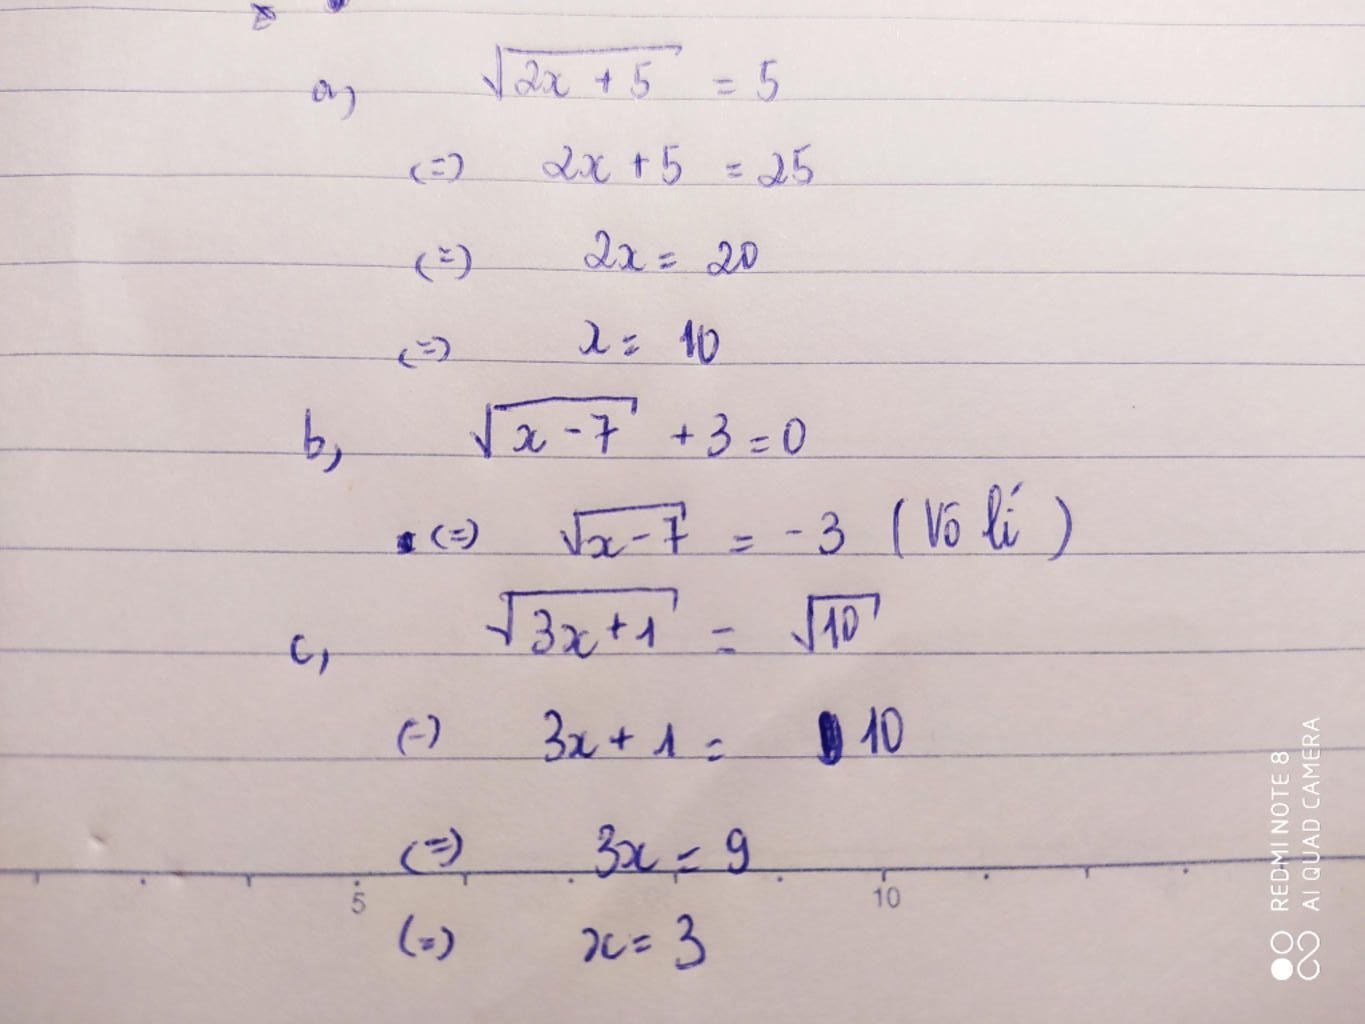 a, √2x + 5 = 5
(=) 2x + 5 = 25
(=) 2x = 20
(=) x = 10
b, √x - 7 + 3 = 0
(=) √x - 7 = - 3 (Vô lí)
c, √3x + 1 = √10
(-) 3x + 1 = 10
(=) 3x = 9
5 10
(=) x = 3
REDMI NOTE 8
AI QUAD CAMERA